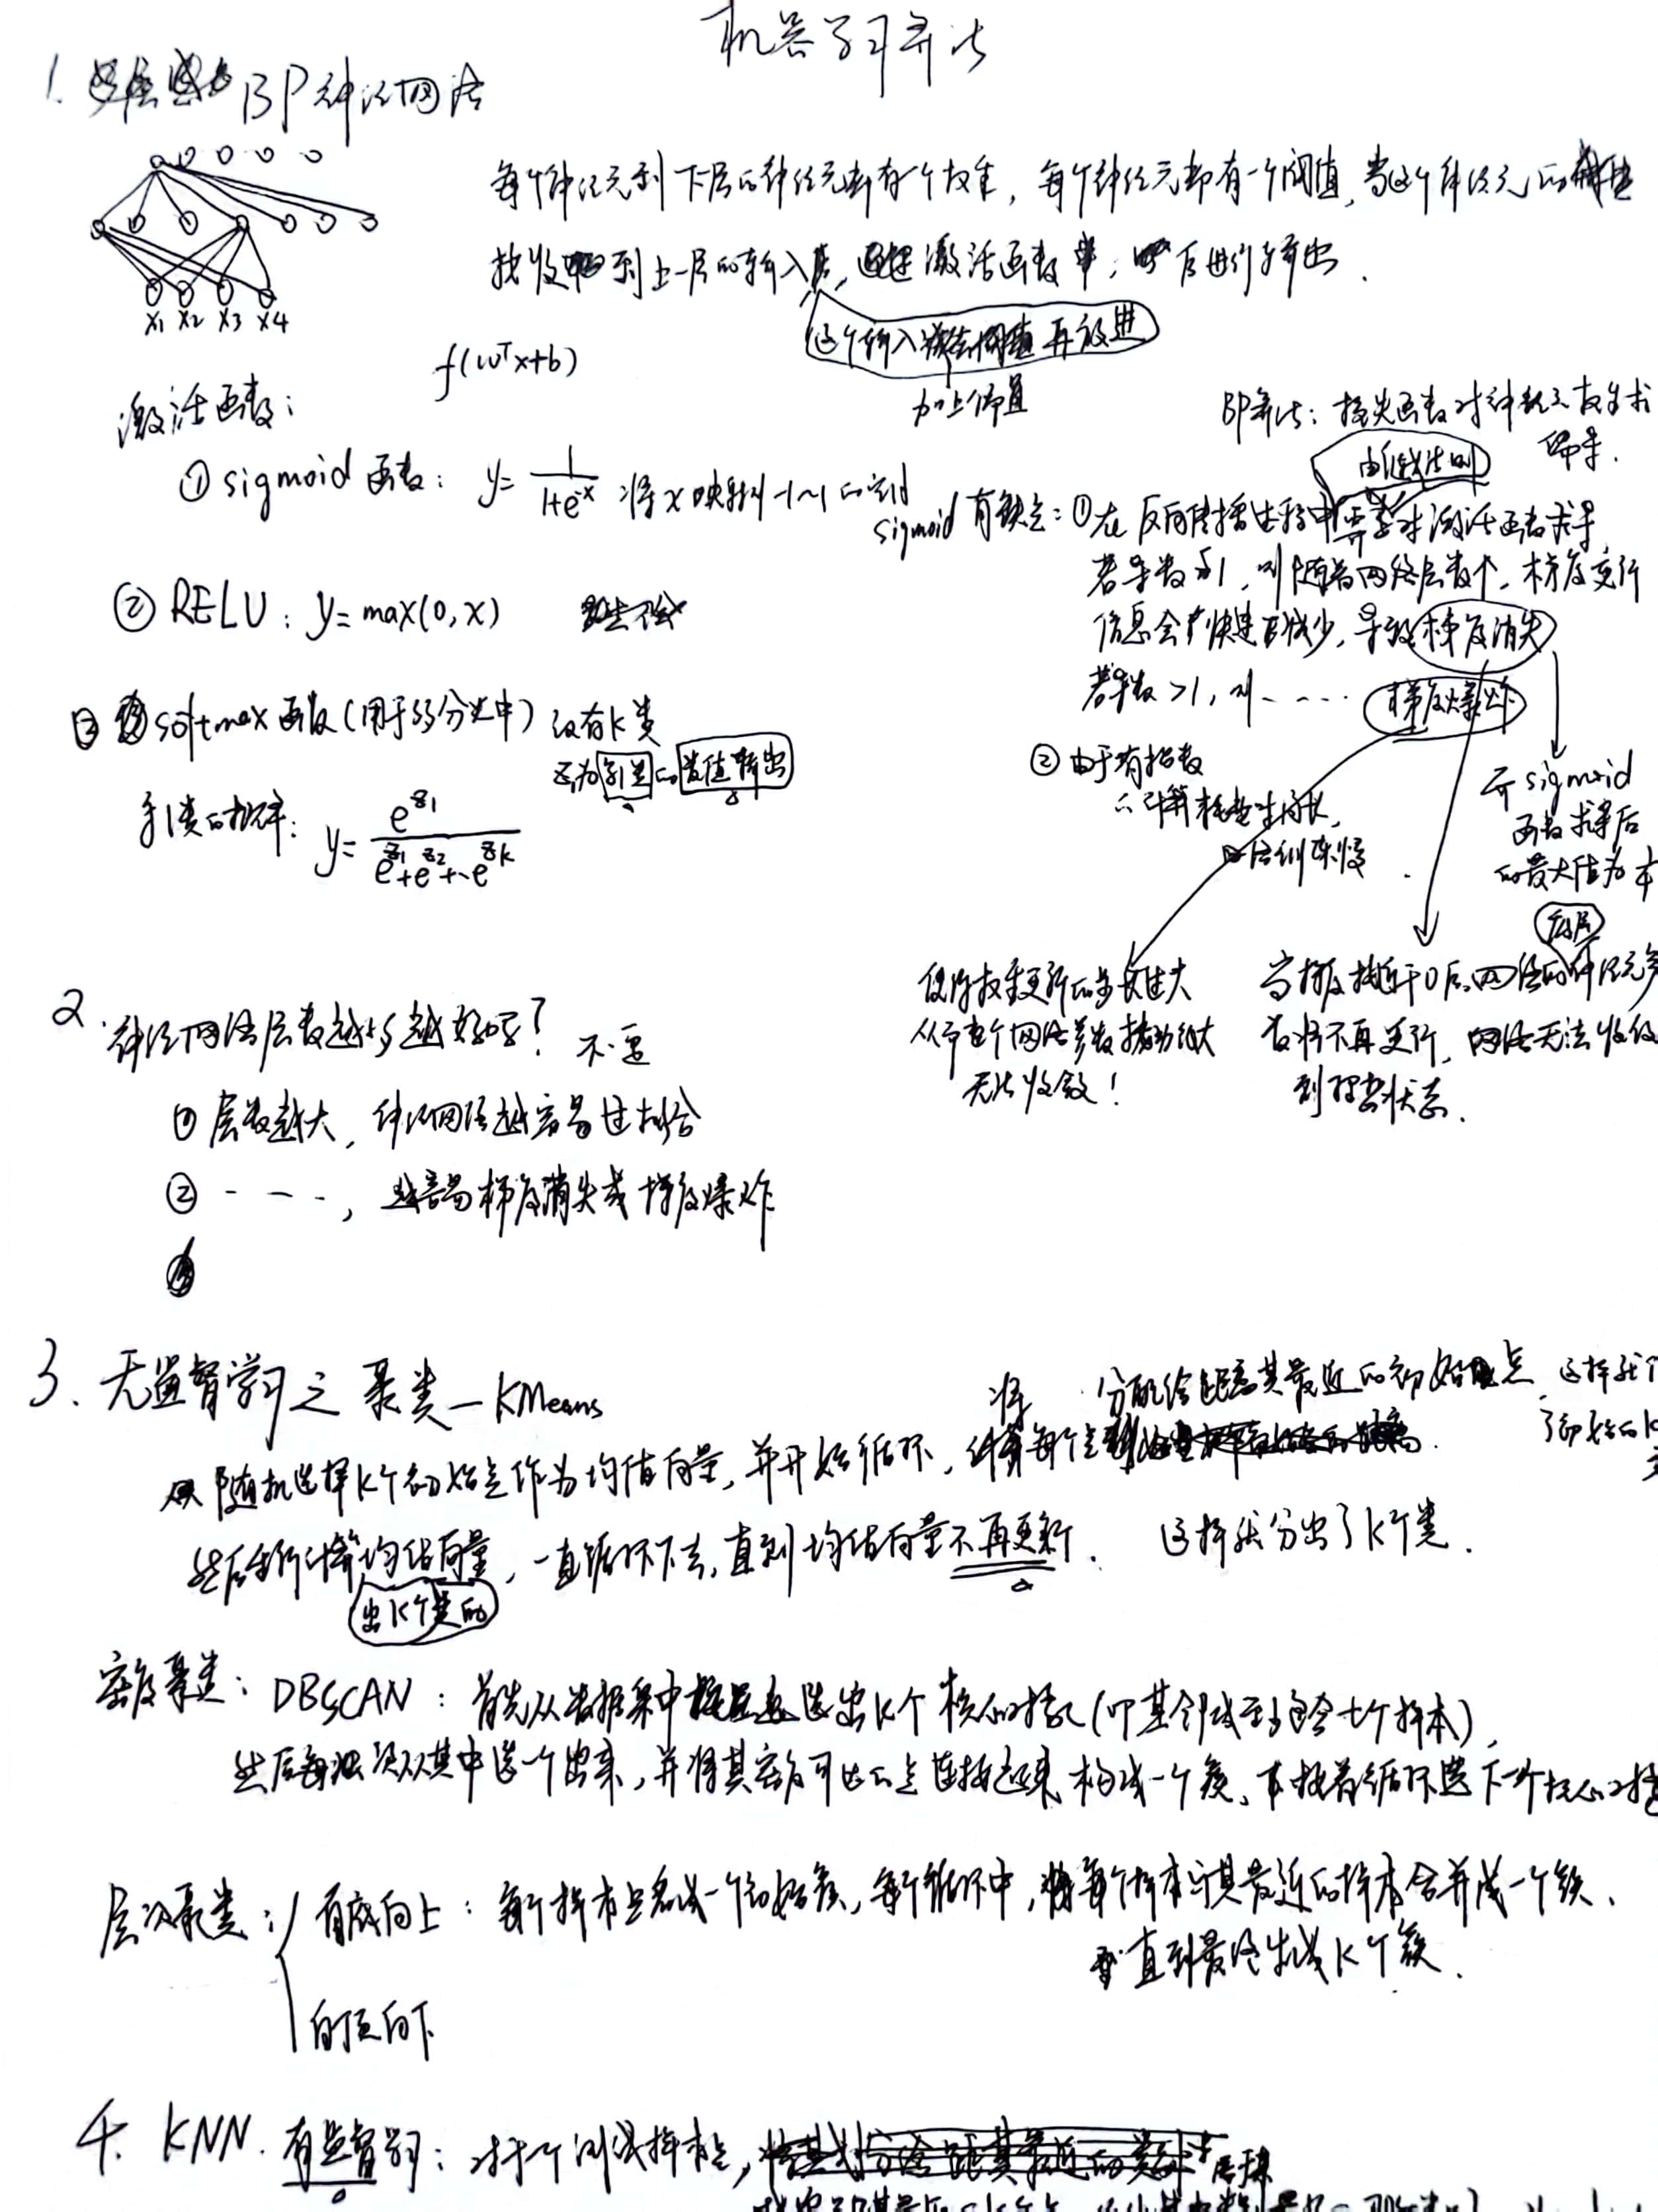 机器学习算法
1. BP神经网络
每个神经元到下层的神经元都有一个权重，每个神经元都有一个阈值，当这个神经元的
接收到上一层的输入后，通过激活函数，然后进行输出．
这个输入减去阈值再放进
加上偏置
x1 x2 x3 x4
f(wᵀx+b)
激活函数：
① sigmoid 函数： y= 1/(1+e^-x) 将x映射到 -1~1 的空间
② RELU： y=max(0, x)
③ softmax 函数(用于多分类中) 设有k类
z1为第1类的数值输出
第1类的概率： y= e^z1/(e^z1+e^z2+…e^zk)
BP算法：损失函数对神经元权重求
偏导．
由链式法则
sigmoid 有缺点：①在反向传播过程中需要对激活函数求导
若导数<1，则随着网络层数个，梯度更新
信息会快速减少，导致梯度消失
若导数>1，则----梯度爆炸
②由于有指数
的计算耗费时间长，
训练慢
而sigmoid
函数求导后
的最大值为¼
使得权重更新的步长过大
从而整个网络参数振动很大
无法收敛！
后层
当梯度接近于0后，网络的神经元参
数将不再更新，网络无法收敛
到理想状态．
2. 神经网络层数越多越好吗？ 不是
① 层数越大，神经网络越容易过拟合
② ---，越容易梯度消失或梯度爆炸
3. 无监督学习之聚类—KMeans
将 分配给距离其最近的初始点，这样就
了初始的k
随机选择k个初始点作为均值向量，并开始循环，每个点
然后重新计算均值向量，一直循环下去，直到均值向量不再更新． 这样就分出了k个类．
出k个类的
密度聚类：DBSCAN：首先从数据集中选出k个核心对象(即其邻域至少包含七个样本)，
然后每次从其中选一个出来，并将其密度可达的点连接起来构成一个簇、接着循环选下一个核心对
层次聚类： 自底向上：每个样本点看成一个初始簇，每个循环中，将每个样本与其最近的样本合并成一个簇、
直到最终生成k个簇．
自顶向下
4. KNN．有监督学习：对于一个测试样本点，